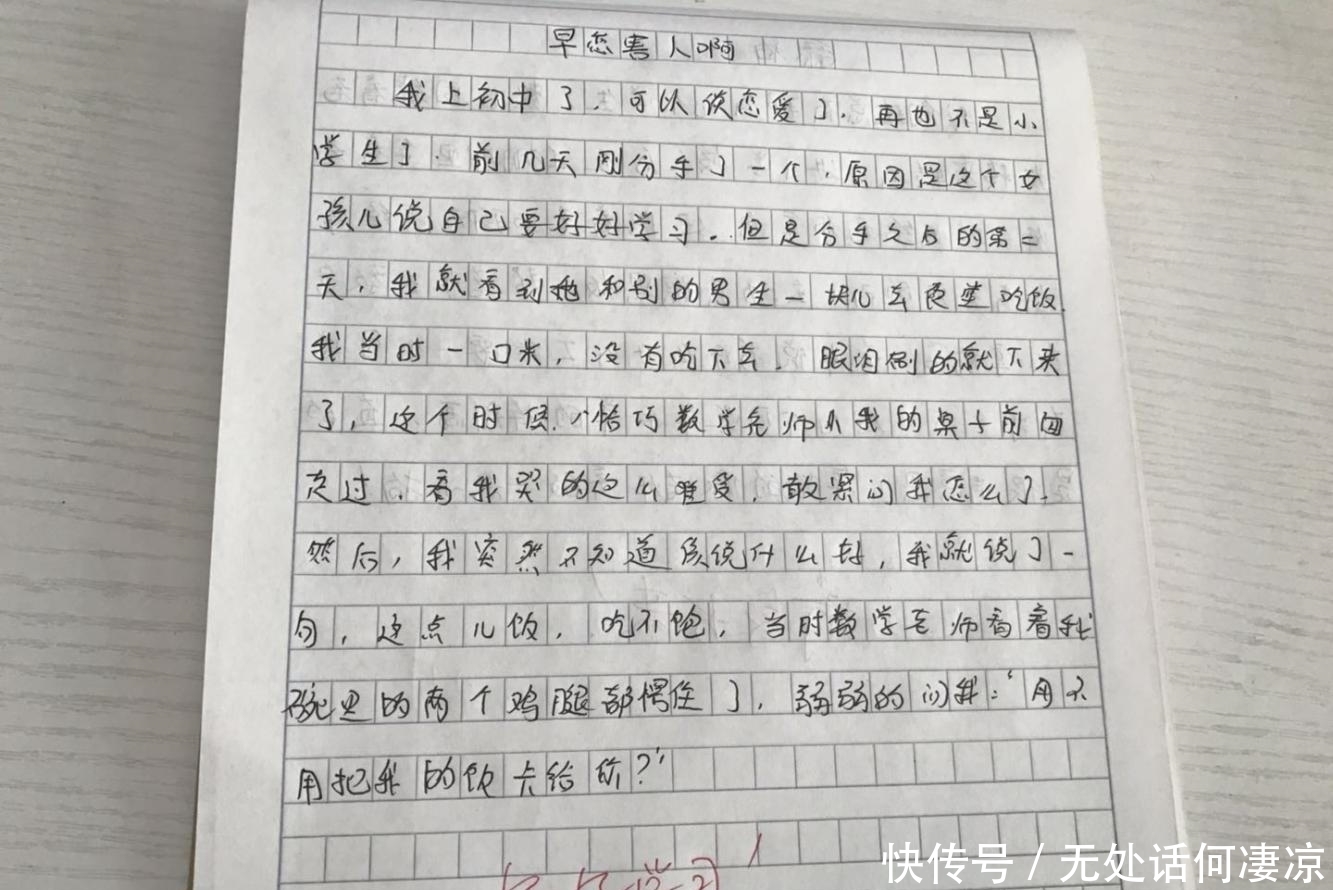 早恋害人啊
我上初中了，可以谈恋爱了．再也不是小
学生了．前几天刚分手了一个，原因是这个女
孩儿说自己要好好学习．但是分手之后的第二
天，我就看到她和别的男生一块儿去食堂吃饭．
我当时一口米，没有吃下去．眼泪刷的就下来
了，这个时候，恰巧数学老师从我的桌子前面
走过，看我哭的这么难受，敢紧问我怎么了．
然后，我突然不知道该说什么好，我就说了一
句，这点儿饭，吃不饱，当时数学老师看着我
碗里的两个鸡腿都愣住了，弱弱的问我："用不
用把我的饭卡给你？"
快传号 / 无处话何凄凉